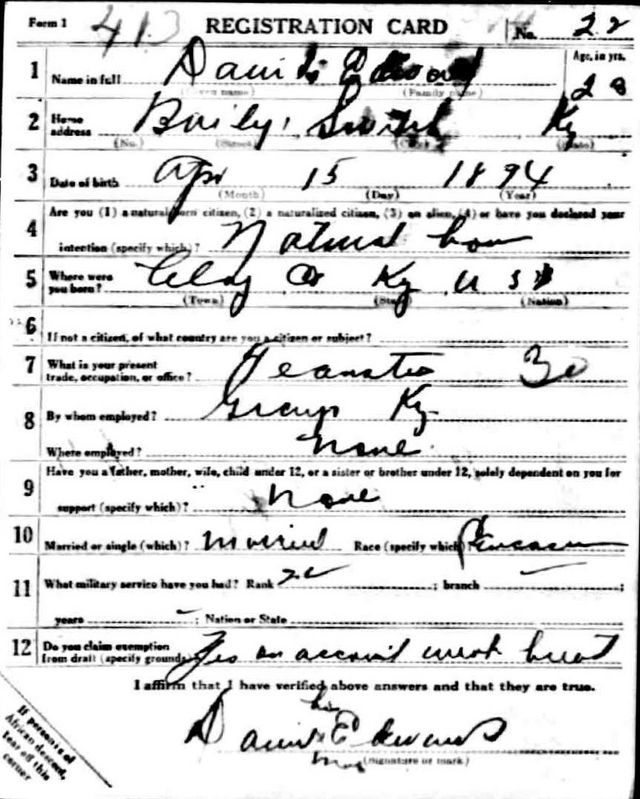 Form 1 413 REGISTRATION CARD No. 22
1 Name in full David Edward Age, in yrs.
(Given name) (Family name) 23
2 Home address Ky
(No.) (Street) (City) (State)
3 Date of birth Apr 15 1894
(Month) (Day) (Year)
Are you (1) a natural born citizen, (2) a naturalized citizen, (3) an alien, (4) or have you declared your
4 intention (specify which)? Natural born
5 Where were you born? Clay Co Ky U S
(Town) (State) (Nation)
6 If not a citizen, of what country are you a citizen or subject?
7 What is your present trade, occupation, or office? Teamster
8 By whom employed? Ky
Where employed? None
Have you a father, mother, wife, child under 12, or a sister or brother under 12, solely dependent on you for
9 support (specify which)? None
10 Married or single (which)? Married Race (specify which)? Caucasian
11 What military service have you had? Rank ; branch ;
years ; Nation or State
12 Do you claim exemption from draft (specify grounds)? Yes on account weak heart
I affirm that I have verified above answers and that they are true.
his
David Edwards
mark (Signature or mark)
If person is of African descent, tear off this corner